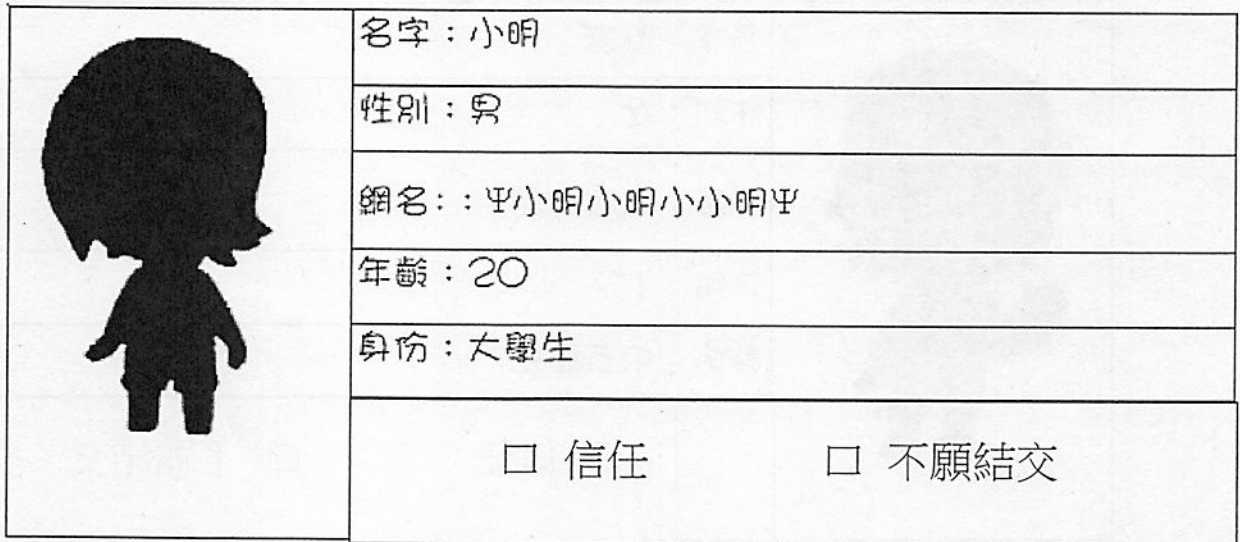 名字：小明
性別：男
網名：：Ψ小明小明小小明Ψ
年齡：20
身份：大學生
□ 信任 □ 不願結交